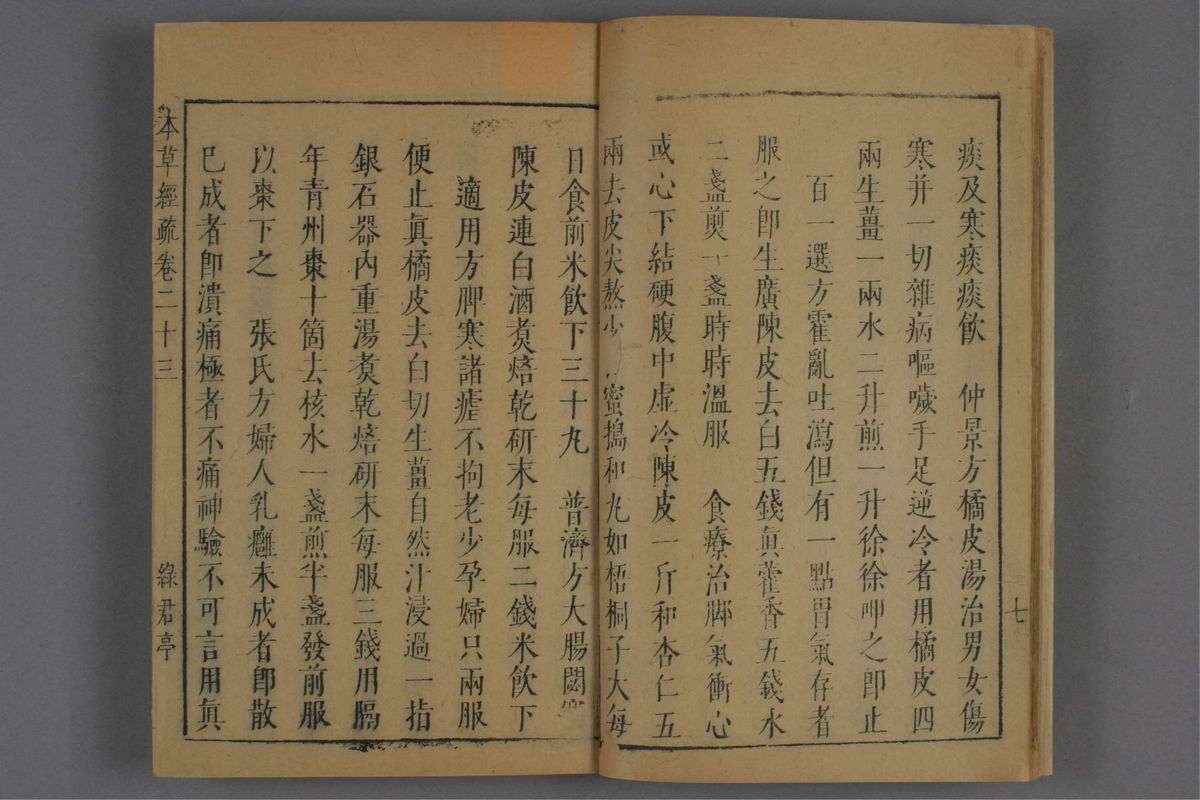 痰及寒痰痰飲　仲景方橘皮湯治男女傷
寒并一切雜病嘔噦手足逆冷者用橘皮四
兩生薑一兩水二升煎一升徐徐呷之即止
百一選方霍亂吐瀉但有一點胃氣存者
服之即生廣陳皮去白五錢眞藿香五錢水
二盞煎一盞時時溫服　食療治脚氣衝心
或心下結硬腹中虛冷陳皮一斤和杏仁五
兩去皮尖熬少蜜搗和丸如梧桐子大每
七
日食前米飲下三十丸　普濟方大腸閟
陳皮連白酒煑焙乾研末每服二錢米飲下
適用方脾寒諸瘧不拘老少孕婦只兩服
便止眞橘皮去白切生薑自然汁浸過一指
銀石器內重湯煑乾焙研末每服三錢用隔
年青州棗十箇去核水一盞煎半盞發前服
以棗下之　張氏方婦人乳癰未成者即散
已成者即潰痛極者不痛神驗不可言用眞
本草經疏卷二十三
綠君亭